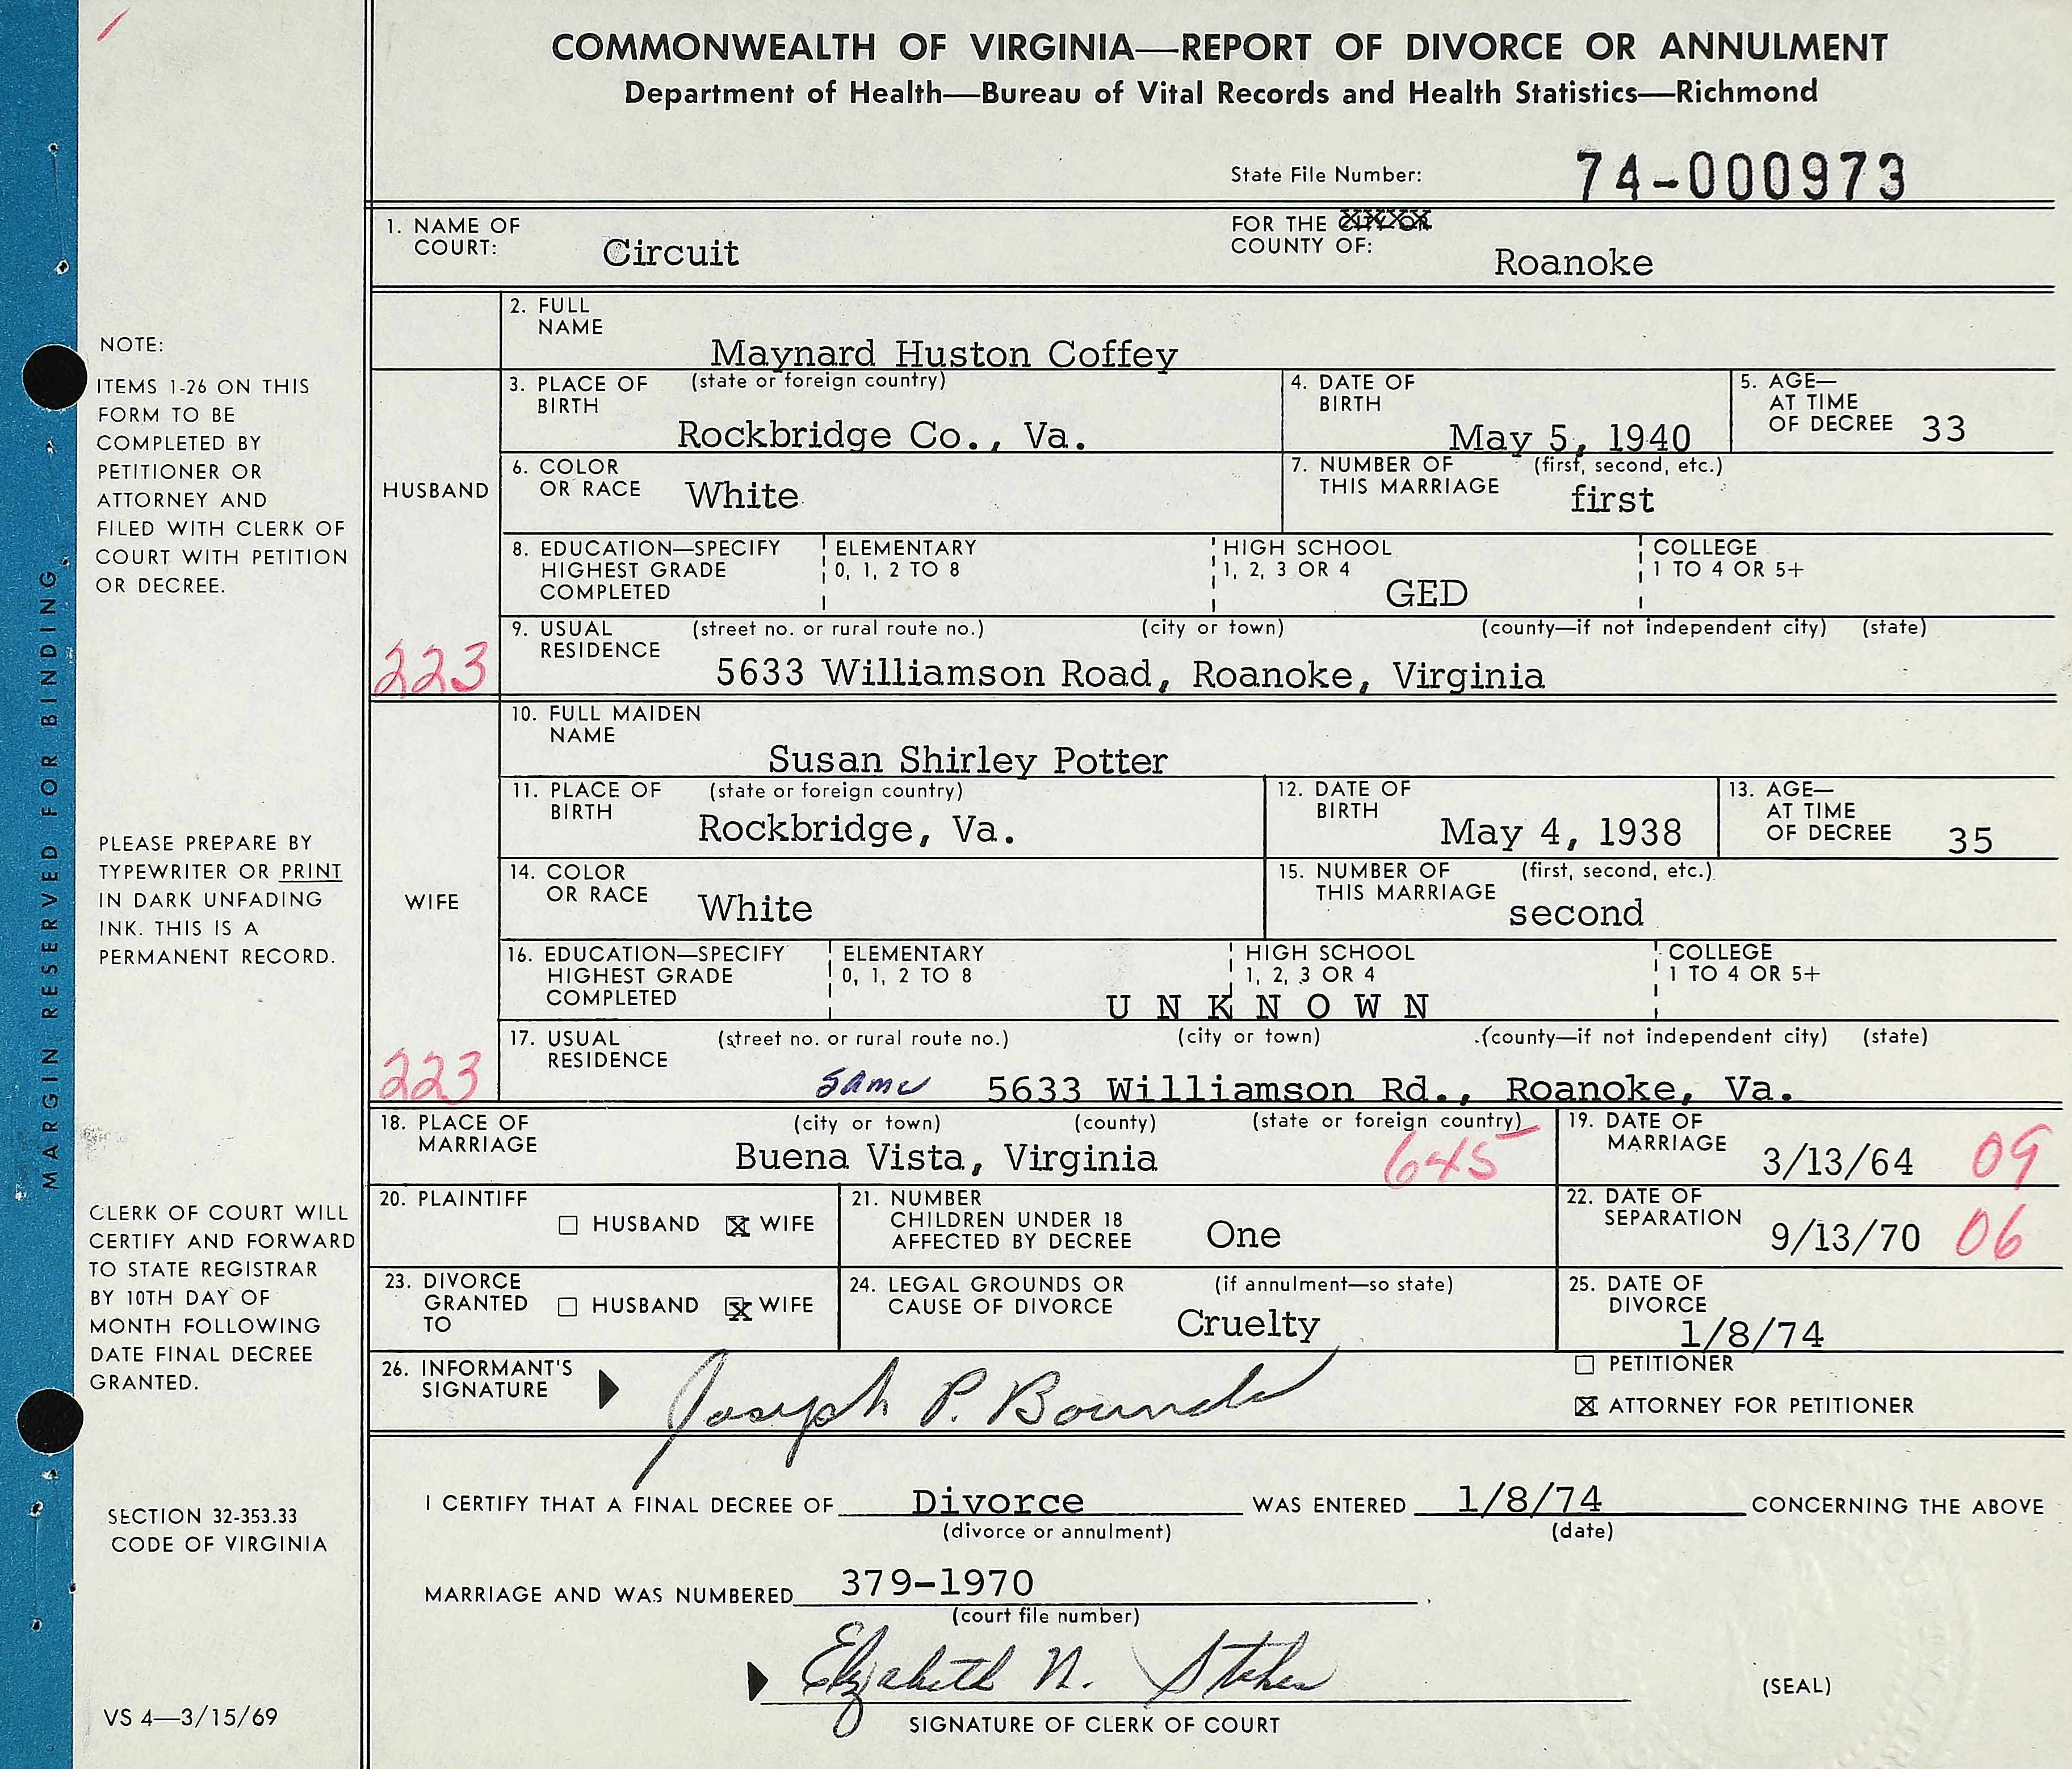 COMMONWEALTH OF VIRGINIA—REPORT OF DIVORCE OR ANNULMENT
Department of Health—Bureau of Vital Records and Health Statistics—Richmond
State File Number: 74-000973
1. NAME OF COURT: Circuit
FOR THE CITY OR COUNTY OF: Roanoke
HUSBAND
2. FULL NAME Maynard Huston Coffey
3. PLACE OF BIRTH (state or foreign country) Rockbridge Co., Va.
4. DATE OF BIRTH May 5, 1940
5. AGE—AT TIME OF DECREE 33
6. COLOR OR RACE White
7. NUMBER OF THIS MARRIAGE (first, second, etc.) first
8. EDUCATION—SPECIFY HIGHEST GRADE COMPLETED
ELEMENTARY 0, 1, 2 TO 8
HIGH SCHOOL 1, 2, 3 OR 4 GED
COLLEGE 1 TO 4 OR 5+
9. USUAL RESIDENCE (street no. or rural route no.) (city or town) (county—if not independent city) (state)
223
5633 Williamson Road, Roanoke, Virginia
WIFE
10. FULL MAIDEN NAME Susan Shirley Potter
11. PLACE OF BIRTH (state or foreign country) Rockbridge, Va.
12. DATE OF BIRTH May 4, 1938
13. AGE—AT TIME OF DECREE 35
14. COLOR OR RACE White
15. NUMBER OF THIS MARRIAGE (first, second, etc.) second
16. EDUCATION—SPECIFY HIGHEST GRADE COMPLETED
ELEMENTARY 0, 1, 2 TO 8
HIGH SCHOOL 1, 2, 3 OR 4
COLLEGE 1 TO 4 OR 5+
U N K N O W N
17. USUAL RESIDENCE (street no. or rural route no.) (city or town) (county—if not independent city) (state)
223
same 5633 Williamson Rd., Roanoke, Va.
18. PLACE OF MARRIAGE (city or town) (county) (state or foreign country)
Buena Vista, Virginia 645
19. DATE OF MARRIAGE 3/13/64 09
20. PLAINTIFF ☐ HUSBAND ☒ WIFE
21. NUMBER CHILDREN UNDER 18 AFFECTED BY DECREE One
22. DATE OF SEPARATION 9/13/70 06
23. DIVORCE GRANTED TO ☐ HUSBAND ☒ WIFE
24. LEGAL GROUNDS OR CAUSE OF DIVORCE (if annulment—so state) Cruelty
25. DATE OF DIVORCE 1/8/74
26. INFORMANT'S SIGNATURE Joseph P. Bounds
☐ PETITIONER
☒ ATTORNEY FOR PETITIONER
I CERTIFY THAT A FINAL DECREE OF Divorce WAS ENTERED 1/8/74 CONCERNING THE ABOVE
(divorce or annulment) (date)
MARRIAGE AND WAS NUMBERED 379-1970
(court file number)
Elizabeth N. Stokes
SIGNATURE OF CLERK OF COURT
(SEAL)
NOTE:
ITEMS 1-26 ON THIS
FORM TO BE
COMPLETED BY
PETITIONER OR
ATTORNEY AND
FILED WITH CLERK OF
COURT WITH PETITION
OR DECREE.
PLEASE PREPARE BY
TYPEWRITER OR PRINT
IN DARK UNFADING
INK. THIS IS A
PERMANENT RECORD.
CLERK OF COURT WILL
CERTIFY AND FORWARD
TO STATE REGISTRAR
BY 10TH DAY OF
MONTH FOLLOWING
DATE FINAL DECREE
GRANTED.
SECTION 32-353.33
CODE OF VIRGINIA
VS 4—3/15/69
MARGIN RESERVED FOR BINDING